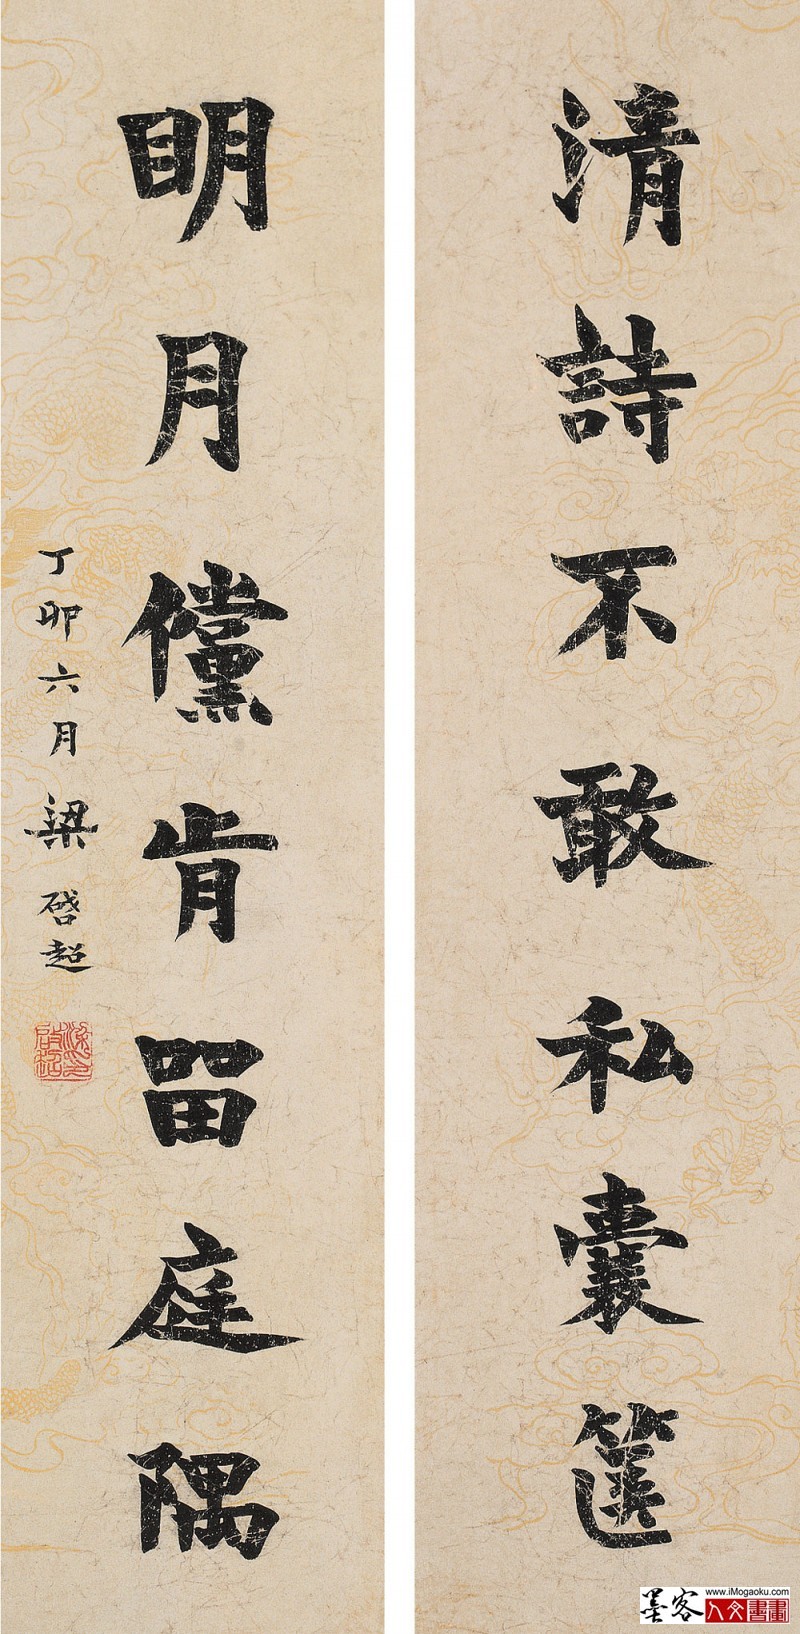 清詩不敢私囊篋
明月儻肯留庭隅
丁卯六月 梁啓超
梁啓超印
墨客 人文書畫
www.iMogaoku.com